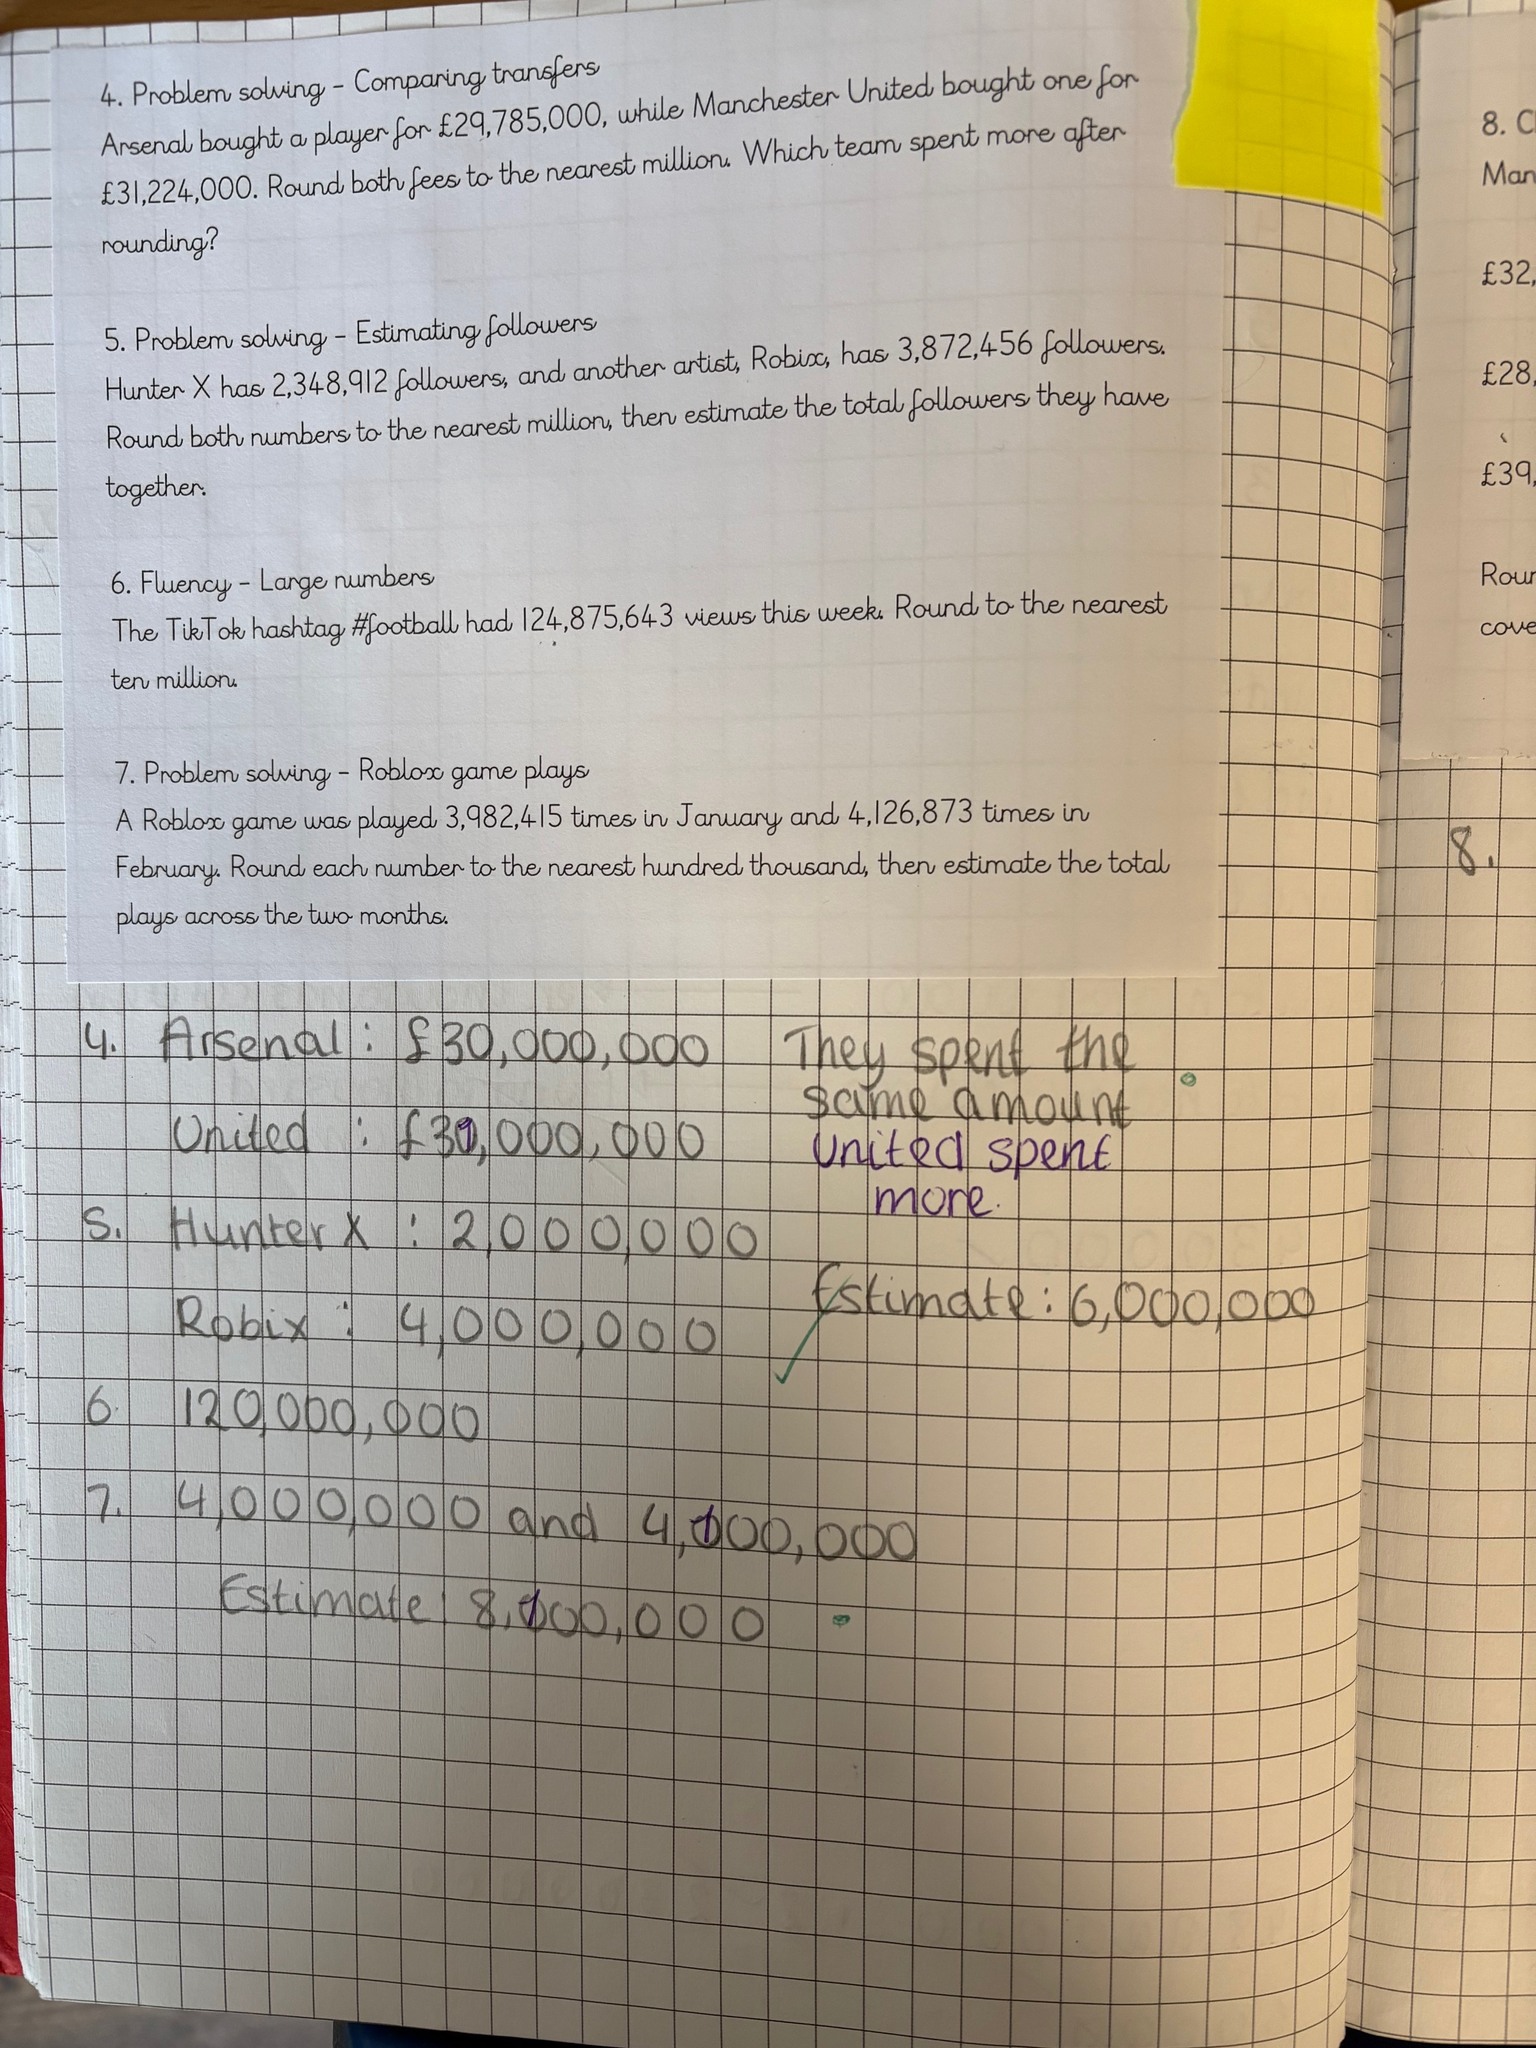 4. Problem solving - Comparing transfers
Arsenal bought a player for £29,785,000, while Manchester United bought one for
£31,224,000. Round both fees to the nearest million. Which team spent more after
rounding?
5. Problem solving - Estimating followers
Hunter X has 2,348,912 followers, and another artist, Robix, has 3,872,456 followers.
Round both numbers to the nearest million, then estimate the total followers they have
together.
6. Fluency - Large numbers
The TikTok hashtag #football had 124,875,643 views this week. Round to the nearest
ten million.
7. Problem solving - Roblox game plays
A Roblox game was played 3,982,415 times in January and 4,126,873 times in
February. Round each number to the nearest hundred thousand, then estimate the total
plays across the two months.
4. Arsenal : £30,000,000
United : £31,000,000
They spent the
same amount
United spent
more.
5. Hunter X : 2,000,000
Robix : 4,000,000
Estimate: 6,000,000
6. 120,000,000
7. 4,000,000 and 4,100,000
Estimate: 8,100,000
8.
Man
£32,
£28,
£39,
Roun
cove
8.